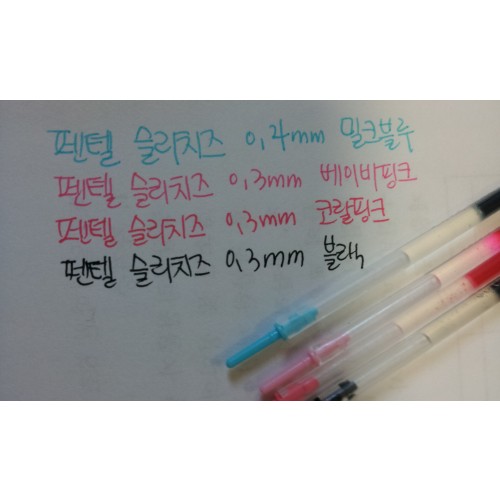 펜텔 슬리치즈 0.4mm 밀크블루
펜텔 슬리치즈 0.3mm 베이비핑크
펜텔 슬리치즈 0.3mm 코랄핑크
펜텔 슬리치즈 0.3mm 블랙